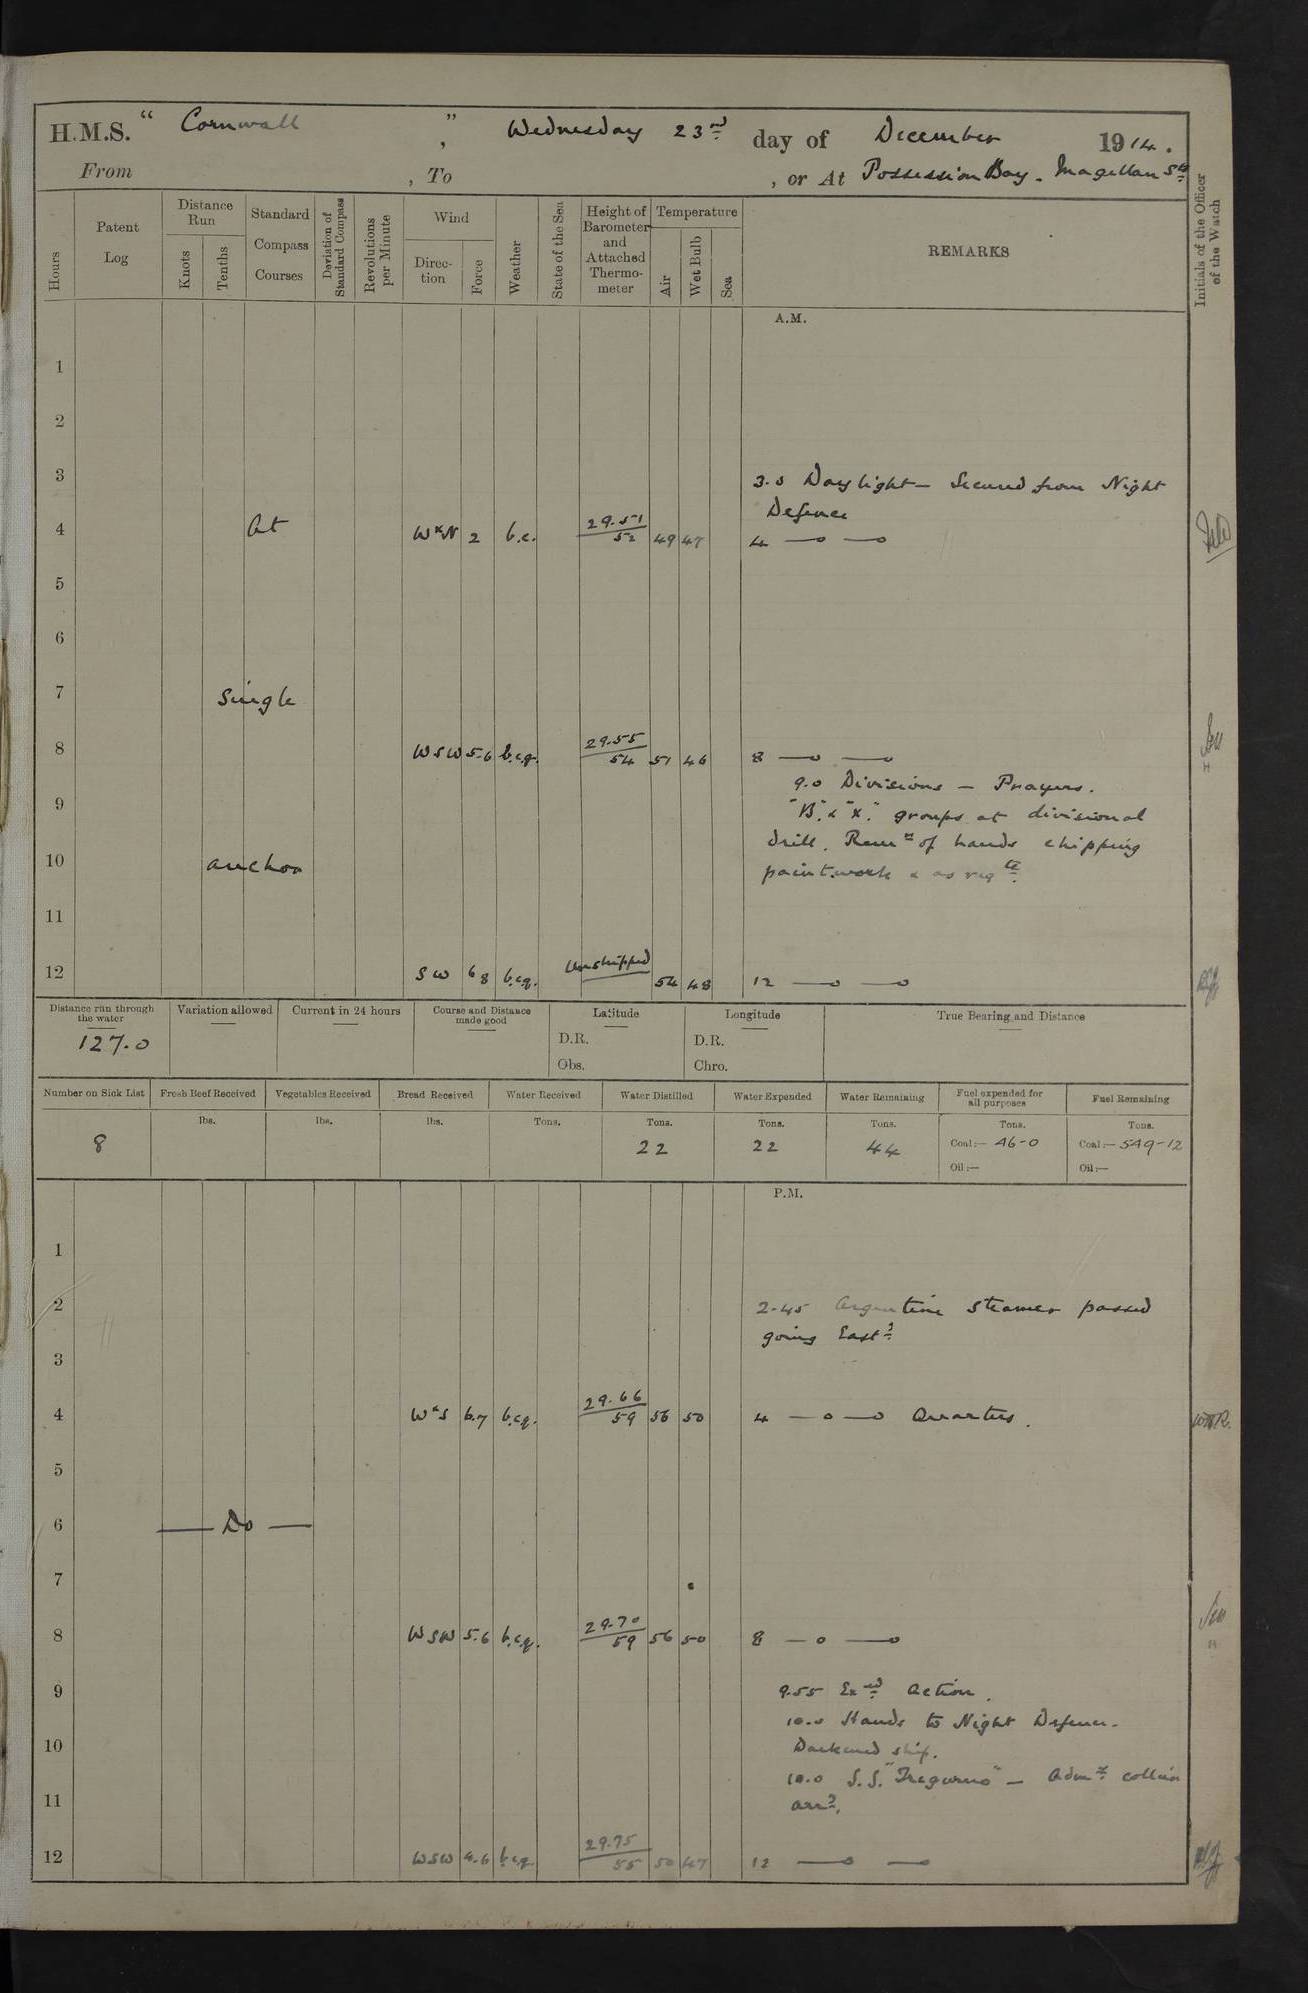 H.M.S. " Cornwall ", Wednesday 23rd day of December 1914.
From , To , or At Possession Bay - Magellan Sts
Hours
Patent Log
Distance Run
Knots
Tenths
Standard Compass Courses
Deviation of Standard Compass
Revolutions per Minute
Wind
Direction
Force
Weather
State of the Sea
Height of Barometer and Attached Thermometer
Temperature
Air
Wet Bulb
Sea
REMARKS
Initials of the Officer of the Watch
A.M.
1
2
3
3.0 Daylight - Secured from Night
Defence
4 At WxN 2 b.c. 29.51 52 49 47 4 —o —o
5
6
7 Single
8 WSW 5.6 b.c.q. 29.55 54 51 46 8 —o —o
9.0 Divisions - Prayers.
9
"B" & "X" groups at divisional
drill. Remr of hands chipping
10 anchor
paintwork & as reqte.
11
12 SW 6 8 b.c.q. Unshipped 54 48 12 —o —o
Distance run through the water
127.0
Variation allowed
Current in 24 hours
Course and Distance made good
Latitude
D.R.
Obs.
Longitude
D.R.
Chro.
True Bearing and Distance
Number on Sick List
8
Fresh Beef Received
lbs.
Vegetables Received
lbs.
Bread Received
lbs.
Water Received
Tons.
Water Distilled
Tons.
22
Water Expended
Tons.
22
Water Remaining
Tons.
44
Fuel expended for all purposes
Tons.
Coal:— 46-0
Oil:—
Fuel Remaining
Tons.
Coal:— 549-12
Oil:—
P.M.
1
2 2.45 Argentine Steamer passed
going Eastd
3
4 WxS 6.7 b.c.q. 29.66 59 56 50 4 —o—o Quarters. W.R.
5
6 — Do —
7
8 WSW 5.6 b.c.q. 29.70 59 56 50 8 —o —o
9 9.55 Exed Action.
10.0 Hands to Night Defence.
10 Darkened ship.
10.0 S.S. "Tregurno" - Admty collier
11 arrd.
12 WSW 4.6 b.c.q. 29.75 55 50 47 12 —o —o